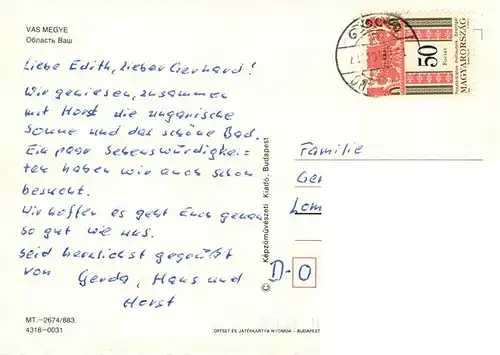 VAS MEGYE
Область Ваш
Liebe Edith, lieber Gerhard!
Wir geniesen, zusammen
mit Horst die ungarische
Sonne und das schöne Bad.
Ein paar Sehenswürdigkei-
ten haben wir auch schon
besucht.
Wir hoffen es geht Euch genau
so gut wie uns.
Seid herzlichst gegrüßt
von Gerda, Hans und
Horst
MT.—2674/883.
4318-0031
© Képzőművészeti Kiadó, Budapest
OFFSET ÉS JÁTÉKKÁRTYA NYOMDA – BUDAPEST
50
Forint
MAGYARORSZÁG
Familie
Ger
Lom
D-O